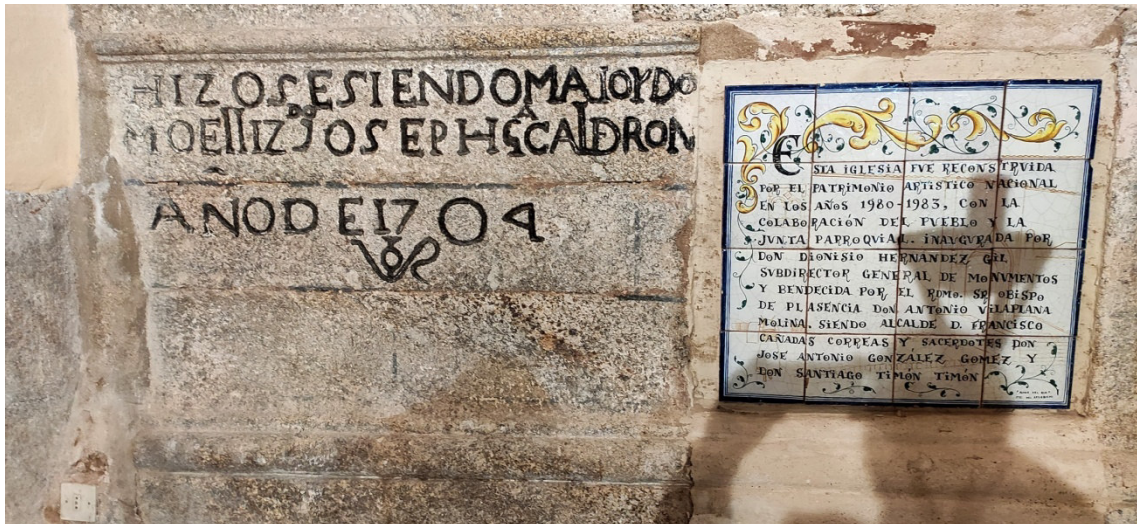 HIZOSE SIENDO MAIOYDO
MO EL LIZDO JOSEPH GA CALDRON
AÑO DE 1704
ESTA IGLESIA FVE RECONSTRVIDA
POR EL PATRIMONIO ARTISTICO NACIONAL
EN LOS AÑOS 1980-1983, CON LA
COLABORACIÓN DEL PVEBLO Y LA
JVNTA PARROQVIAL. INAVGVRADA POR
DON DIONISIO HERNANDEZ GIL
SVBDIRECTOR GENERAL DE MONVMENTOS
Y BENDECIDA POR EL RDMO. SR. OBISPO
DE PLASENCIA DON ANTONIO VILAPLANA
MOLINA. SIENDO ALCALDE D. FRANCISCO
CAÑADAS CORREAS Y SACERDOTES DON
JOSÉ ANTONIO GONZÁLEZ GOMEZ Y
DON SANTIAGO TIMÓN TIMÓN